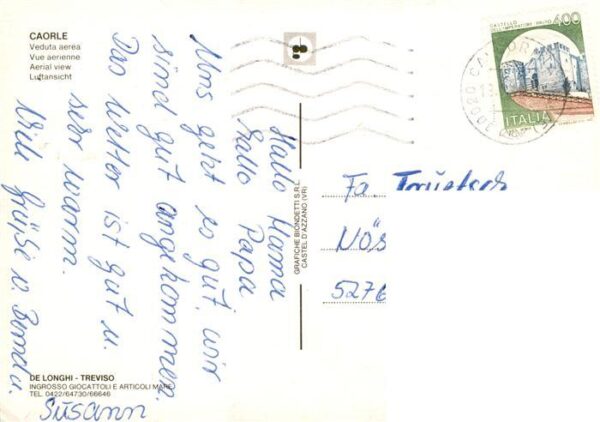 CAORLE
Veduta aerea
Vue aerienne
Aerial view
Luftansicht
Hallo Mama
Hallo Papa
Uns geht es gut, wir
sind gut angekommen.
Das Wetter ist gut u.
sehr warm.
Viele Grüße v.
Susann
GRAFICHE BIONDETTI S.R.L.
CASTEL D'AZZANO (VR)
DE LONGHI - TREVISO
INGROSSO GIOCATTOLI E ARTICOLI MARE
TEL. 0422/64730/66646
CASTELLO
400
ITALIA
30020
Fa.
Nös
5276